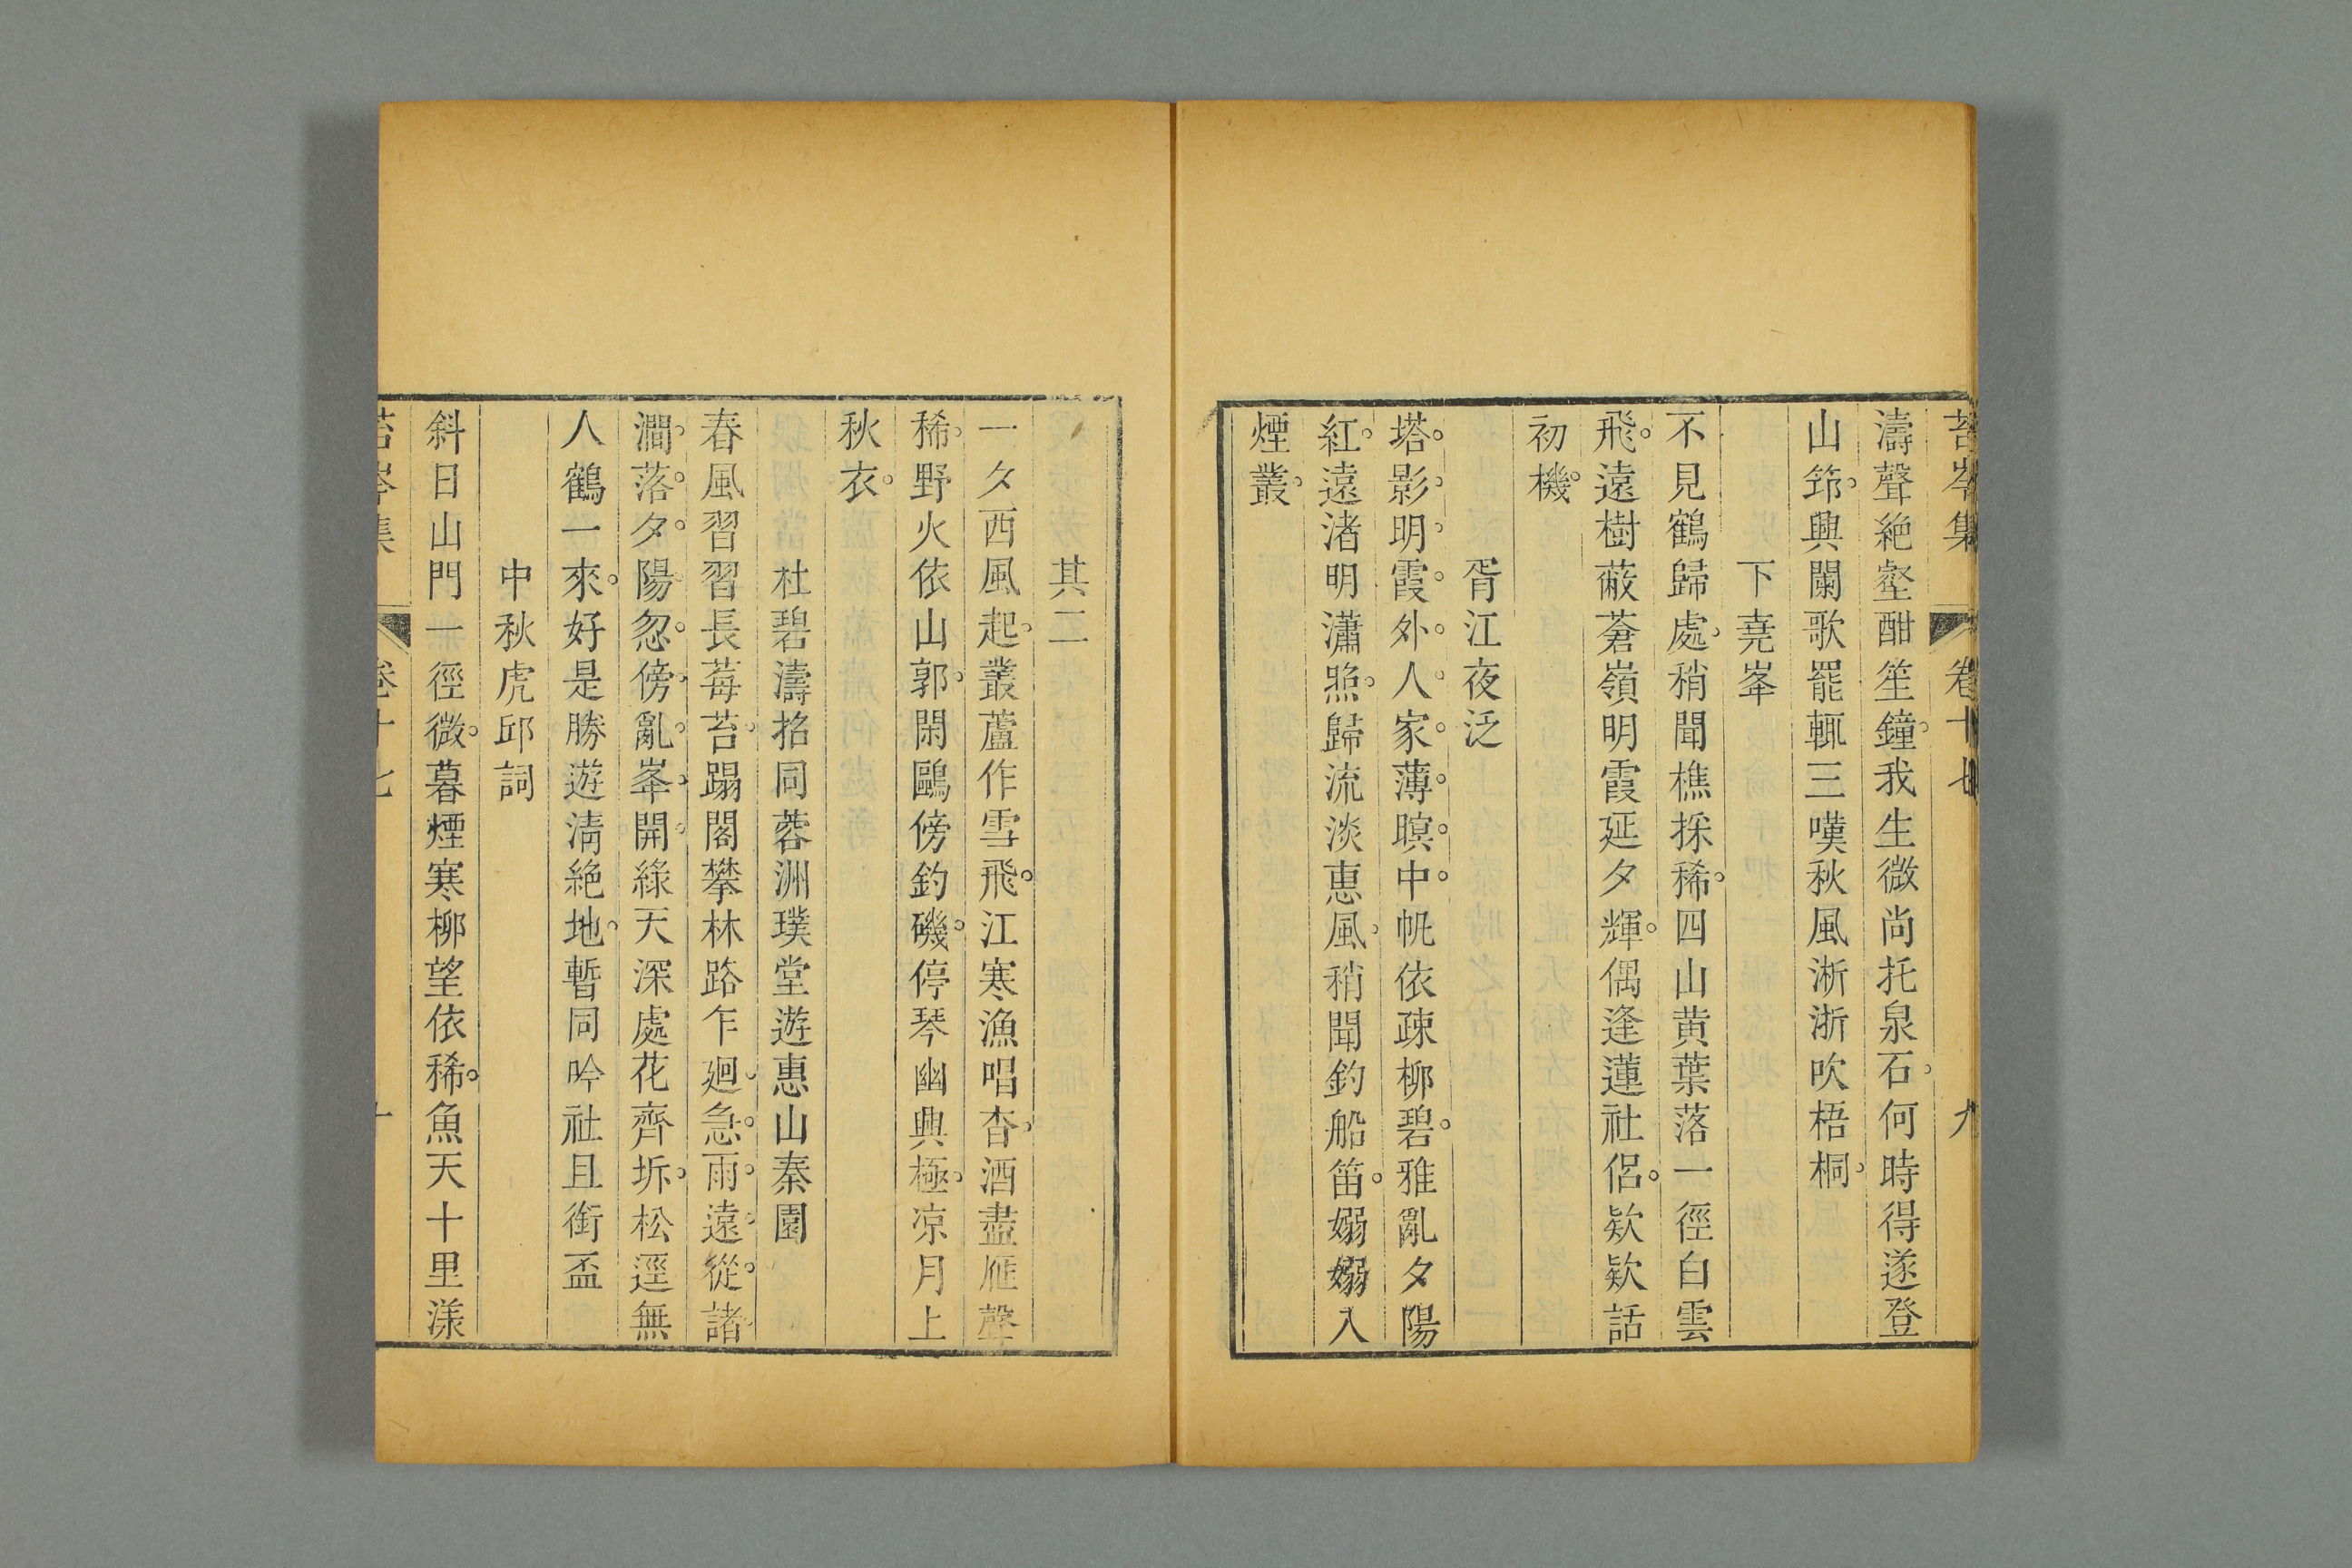 苔岑集 卷十七 九
濤聲絶壑酣笙鐘我生微尚托泉石何時得遂登
山筇興闌歌罷輒三嘆秋風淅浙吹梧桐
下堯峯
不見鶴歸處稍聞樵採稀四山黄葉落一徑白雲
飛遠樹蔽蒼嶺明霞延夕輝偶逢蓮社侶欵欵話
初機
胥江夜泛
塔影明霞外人家薄暝中帆依疎柳碧雅亂夕陽
紅遠渚明瀟照歸流淡惠風稍聞釣船笛嫋嫋入
煙叢
其二
一夕西風起叢蘆作雪飛江寒漁唱杳酒盡雁聲
稀野火依山郭閑鷗傍釣磯停琴幽興極凉月上
秋衣
杜碧濤招同蓉洲璞堂遊惠山秦園
春風習習長莓苔蹋閣攀林路乍廻急雨遠從諸
澗落夕陽忽傍亂峯開綠天深處花齊坼松逕無
人鶴一來好是勝遊淸絶地暫同吟社且銜盃
中秋虎邱詞
斜日山門一徑微暮煙寒柳望依稀魚天十里漾
苔岑集 卷十七 十